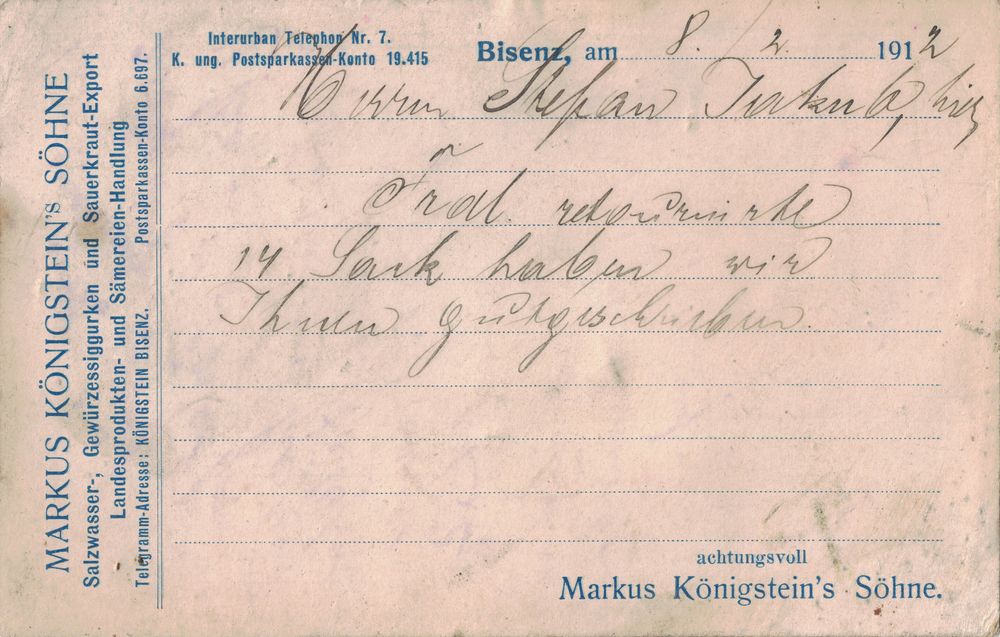 MARKUS KÖNIGSTEIN'S SÖHNE
Salzwasser-, Gewürzessiggurken und Sauerkraut-Export
Landesprodukten- und Sämereien-Handlung
Telegramm-Adresse: KÖNIGSTEIN BISENZ. Postsparkassen-Konto 6.697.
Interurban Telephon Nr. 7.
K. ung. Postsparkassen-Konto 19.415
Bisenz, am 8. /2. 1912
Herrn Stefan Jakub, hier
Frdl. retournirte
14 Sack haben wir
Ihnen gutgeschrieben.
achtungsvoll
Markus Königstein's Söhne.